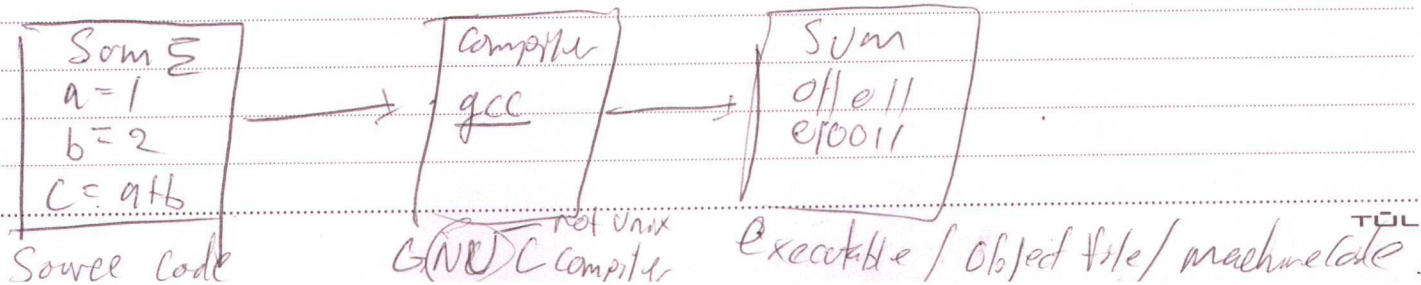 Sum Σ
a = 1
b = 2
c = a+b
Source code
Compiler
gcc
GNU C Compiler
not Unix
Sum
011011
010011
executable / object file / machine code
TŪL